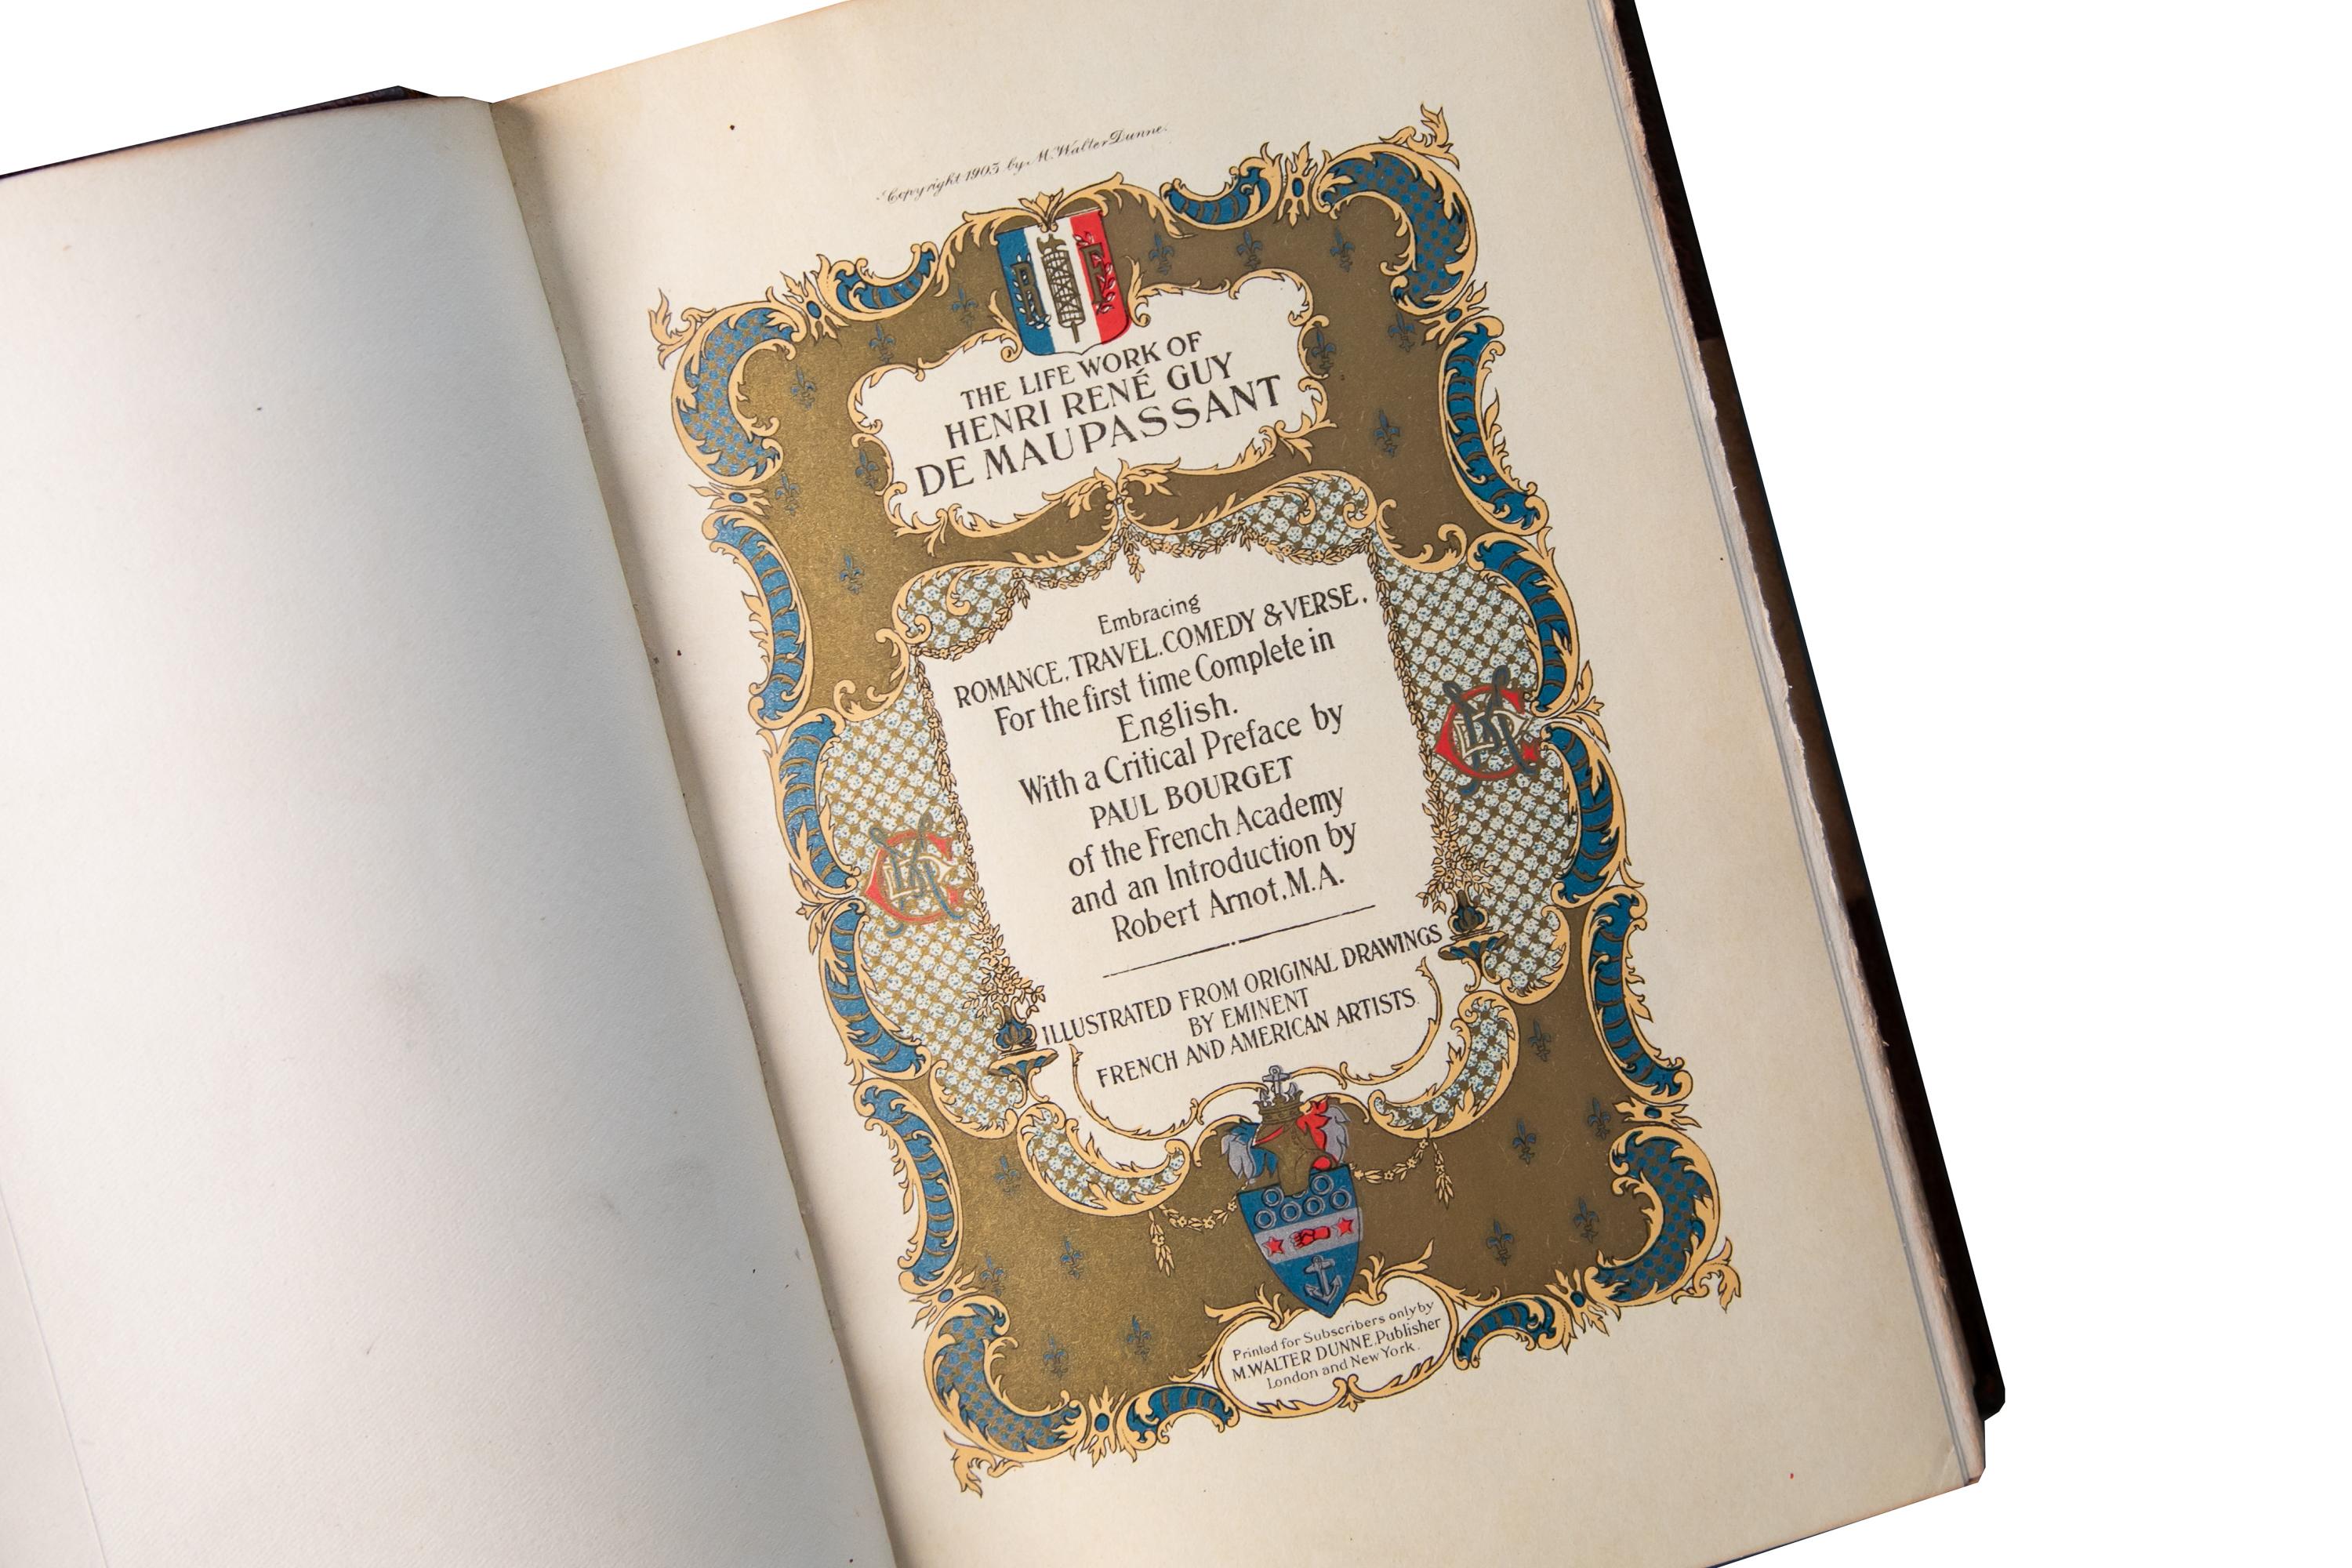 Copyright 1903 by M. Walter Dunne.
R F
THE LIFE WORK OF
HENRI RENÉ GUY
DE MAUPASSANT
Embracing
ROMANCE, TRAVEL, COMEDY & VERSE,
For the first time Complete in
English.
With a Critical Preface by
PAUL BOURGET
of the French Academy
and an Introduction by
Robert Arnot, M.A.
ILLUSTRATED FROM ORIGINAL DRAWINGS
BY EMINENT
FRENCH AND AMERICAN ARTISTS.
Printed for Subscribers only by
M. WALTER DUNNE, Publisher
London and New York.